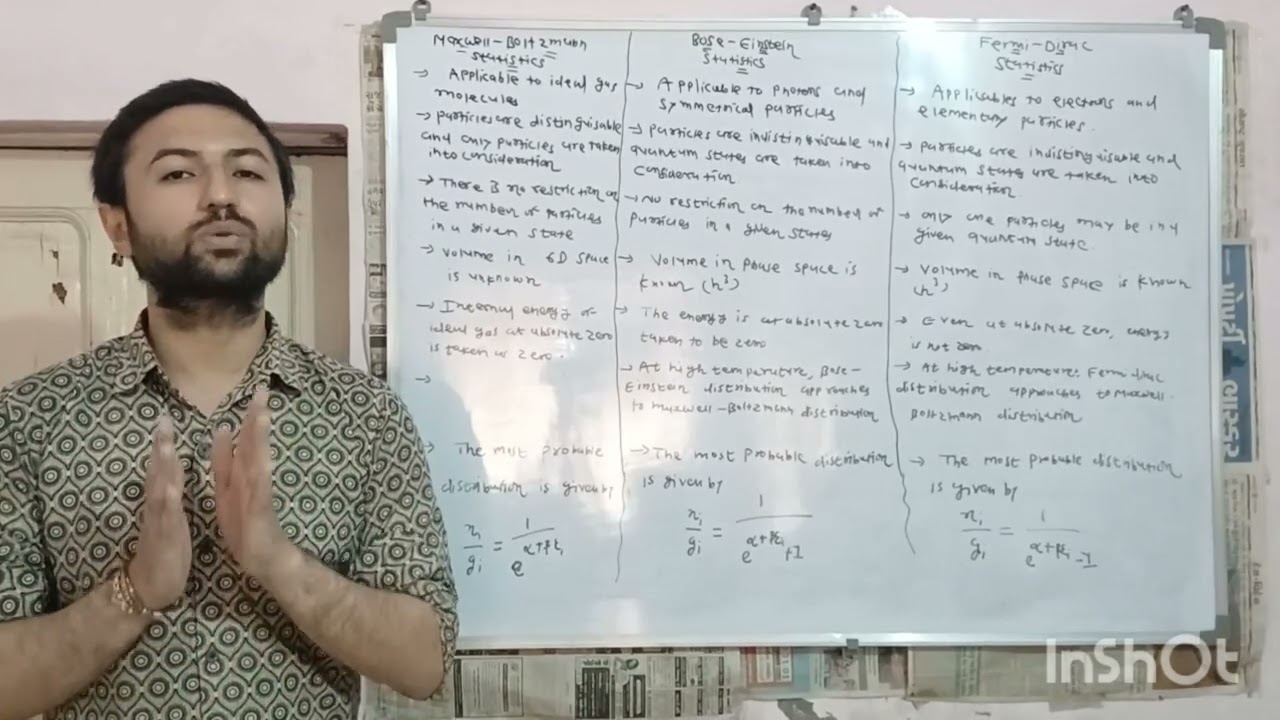 Maxwell-Boltzmann
Statistics
→ Applicable to ideal gas
molecules
→ particles are distinguisable
and only particles are taken
into consideration
→ There is no restriction on
the number of particles
in a given state
→ Volume in 6D space
is unknown
→ Internal energy of
ideal gas at absolute zero
is taken as zero.
→
→ The most probable
distribution is given by
ni/gi = 1/e^α+βεi
Bose-Einstein
Statistics
→ Applicable to photons and
symmetrical particles
→ particles are indistinguisable and
quantum states are taken into
consideration
→ No restriction on the number of
particles in a given states
→ Volume in phase space is
known (h³)
→ The energy is at absolute zero
taken to be zero
→ At high temperature, Bose-
Einstein distribution approaches
to Maxwell-Boltzmann distribution
→ The most probable distribution
is given by
ni/gi = 1/e^α+βεi +1
Fermi-Dirac
Statistics
→ Applicables to electrons and
elementary particles.
→ particles are indistinguisable and
quantum states are taken into
consideration
→ only one particles may be in a
given quantum state.
→ Volume in phase space is known
(h³)
→ Even at absolute zero, energy
is not zero
→ At high temperature. Fermi-dirac
distribution approaches to Maxwell-
Boltzmann distribution
→ The most probable distribution
is given by
ni/gi = 1/e^α+βεi -1
InShOt